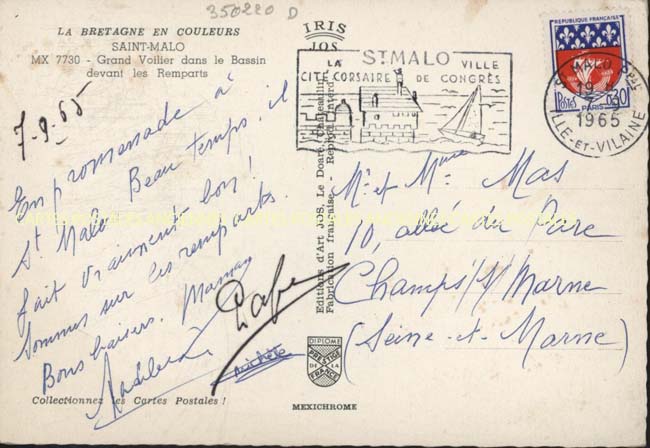 350220 D
LA BRETAGNE EN COULEURS
SAINT-MALO
MX 7730 - Grand Voilier dans le Bassin
devant les Remparts
7-9-65
En promenade à
St Malo. Beau temps, il
fait vraiment bon!
Sommes sur les remparts.
Bons baisers. Maman
Papa
Michèle
Collectionnez les Cartes Postales !
IRIS
JOS
Editions d'Art JOS, Le Doaré, Châteaulin
Fabrication française - Reprod. interd.
DIPLOME
PRESTIGE
DE LA
FRANCE
MEXICHROME
ST MALO
LA VILLE
CITÉ CORSAIRE DE CONGRÈS
REPUBLIQUE FRANÇAISE
POSTES
PARIS
0,30
MALO
19
1965
ILLE-ET-VILAINE
Mr et Mme Mas
10, allée du Parc
Champs/s/Marne
(Seine-et-Marne)